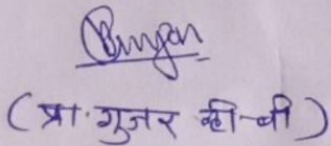 (प्रा. गुजर व्ही-बी)